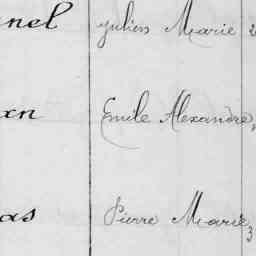 nel Julien Marie
xn Emile Alexandre,
as Pierre Marie,